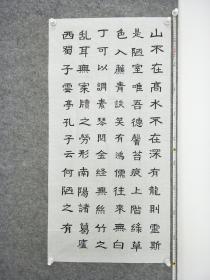 山不在高水不在深有龍則靈斯
是陋室唯吾德馨苔痕上階綠草
色入簾青談笑有鴻儒往來無白
丁可以調素琴閱金經無絲竹之
亂耳無案牘之勞形南陽諸葛廬
西蜀子雲亭孔子云何陋之有